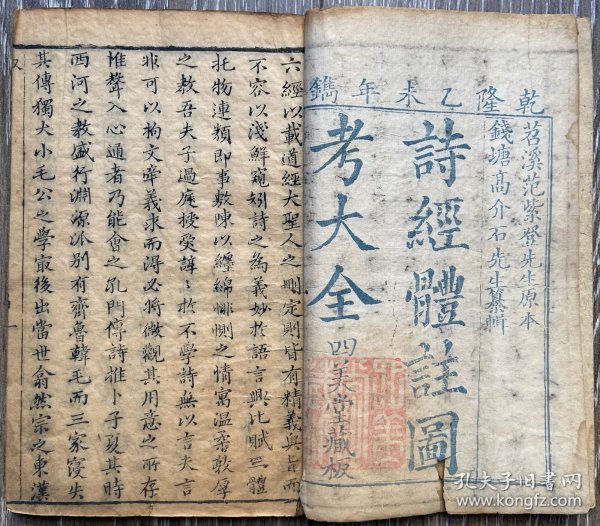 乾隆乙未年鐫
苕溪范紫登先生原本
錢塘高介石先生纂輯
詩經體註圖
考大全
四美堂藏板
六經以載道經大聖人之刪定則皆有精義奥旨而
不容以淺鮮窺矧詩之為義妙於語言興比賦三體
托物連類即事敷陳以纏綿悱惻之情寓温柔敦厚
之教吾夫子過庭授受諄〻於不學詩無以言夫言
非可以拘文牽義求而淂必將微觀其用意之所存
惟聲入心通者乃能會之孔門傳詩推卜子夏其時
西河之教盛行淵源派别有齊魯韓毛而三家寖失
其傳獨大小毛公之學最後出當世翕然宗之東漢
孔夫子旧书网
www.kongfz.com